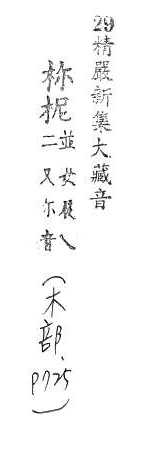 29精嚴新集大藏音
柅並女履乀
二又尔音
(木部、
p725)